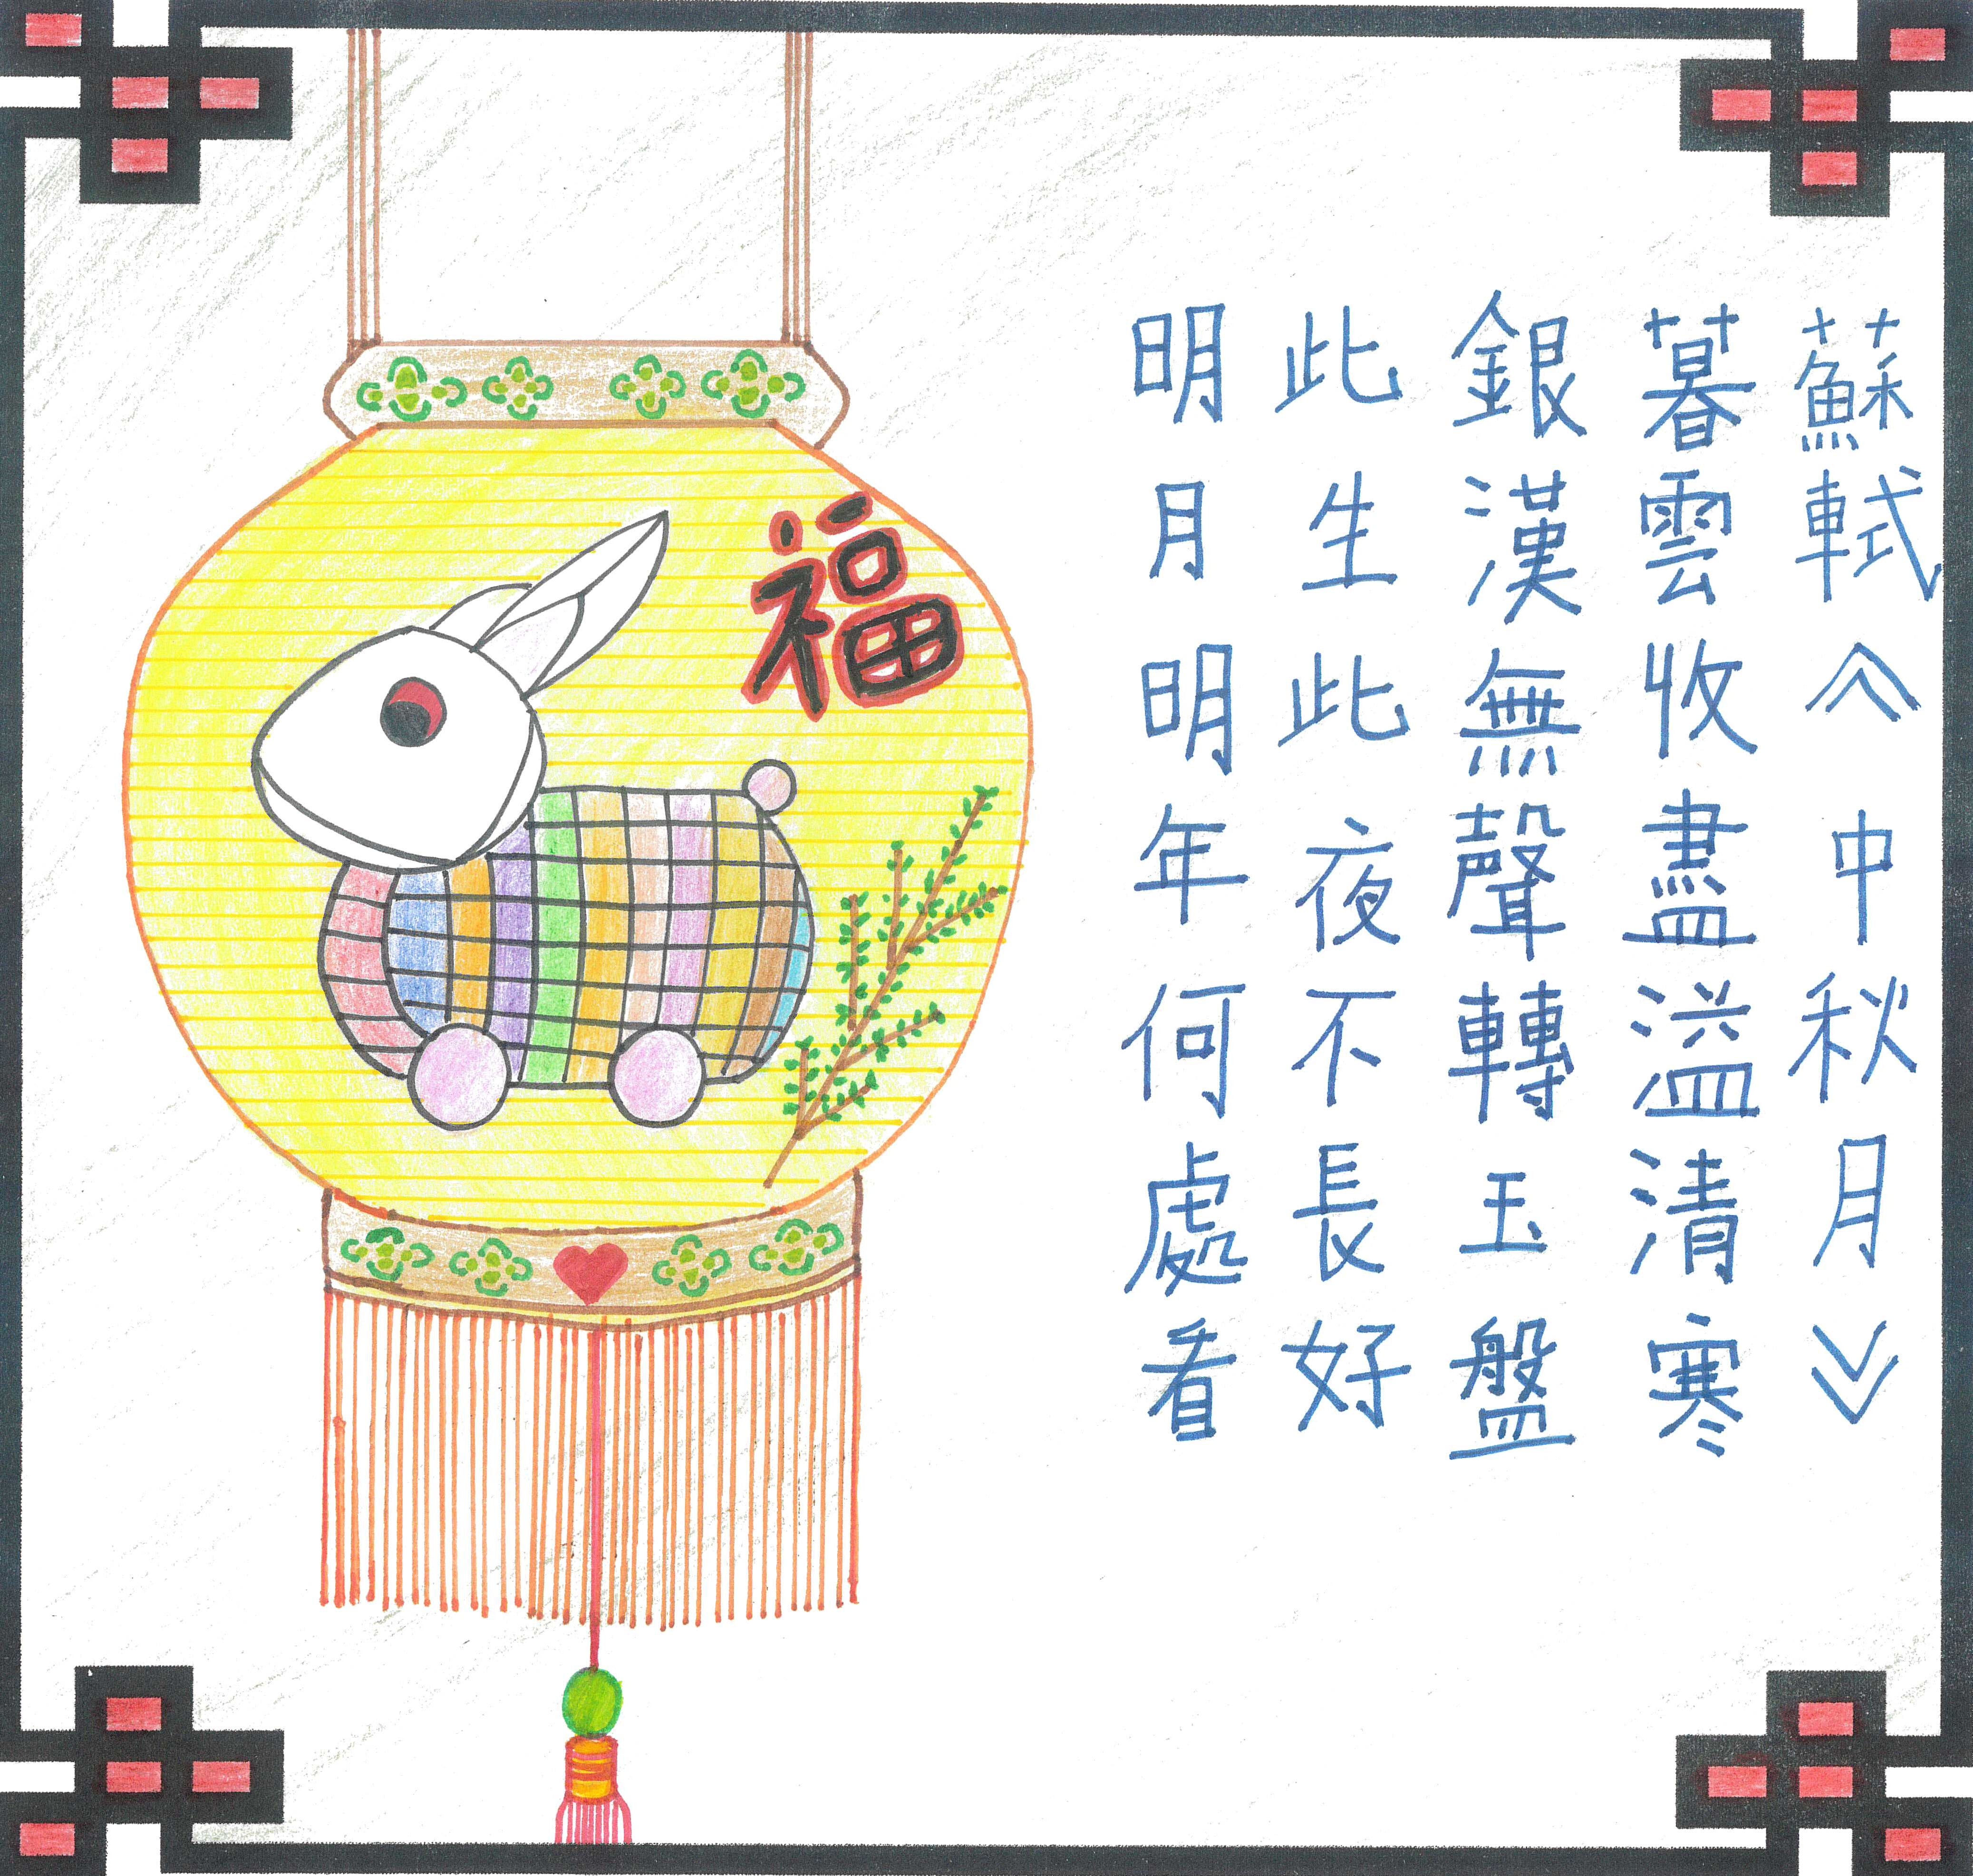 蘇軾《中秋月》
暮雲收盡溢清寒
銀漢無聲轉玉盤
此生此夜不長好
明月明年何處看
福